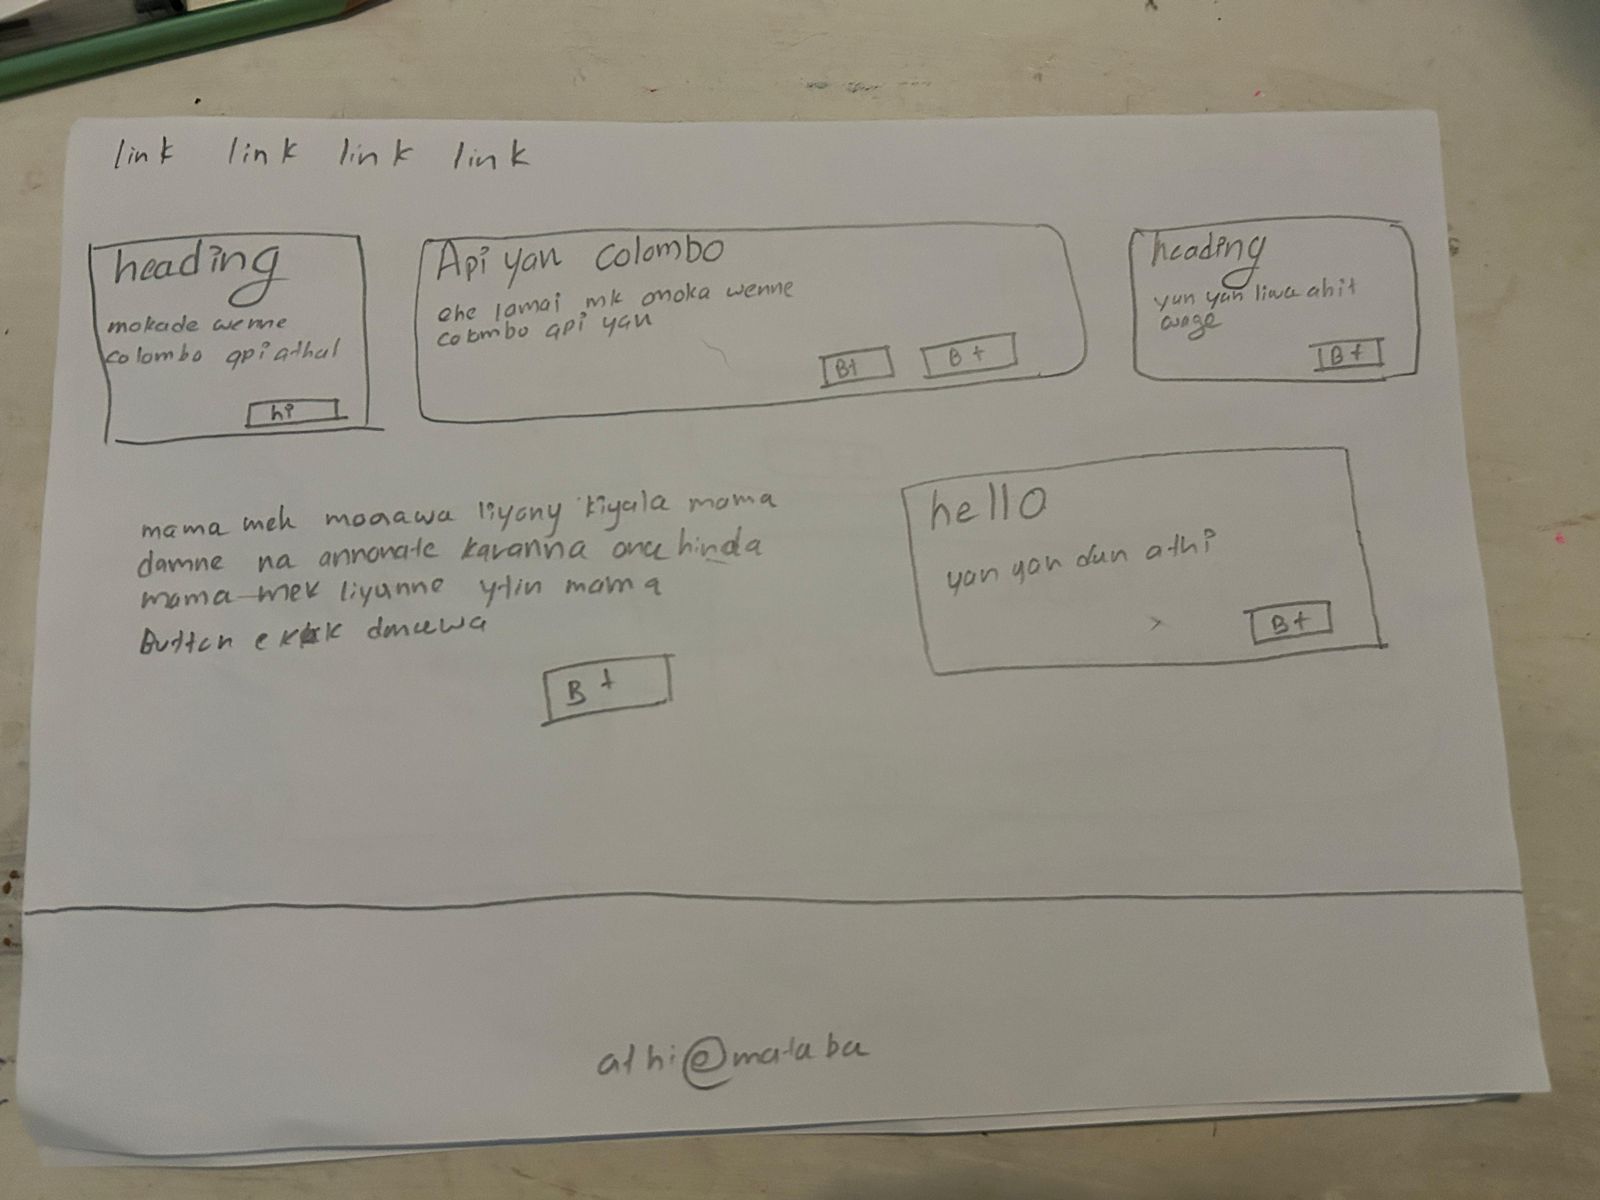 link link link link
heading
mokade wenne
colombo api athal
hi
Api yan colombo
ehe lamai mk onoka wenne
colombo api yan
Bt Bt
heading
yan yan liwa ahit
wage
Bt
mama meh liyany kiyala mama
damne na annonate karanna one hinda
mama mek liyanne ytin mama
Button ekak
Bt
hello
yan yan dun athi
Bt
athi@mataba